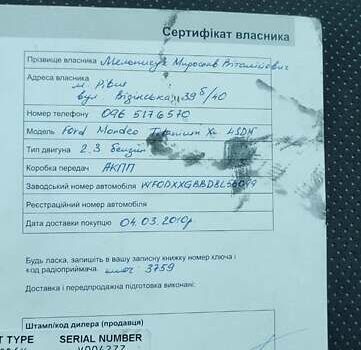 Сертифікат власника
Прізвище власника Мирослав Віталійович
Адреса власника
м. Рівне
вул. Відінська 39б/40
Номер телефону 096 5176570
Модель Ford Mondeo Titanium X 4SDN
Тип двигуна 2.3 бензін
Коробка передач АКПП
Заводський номер автомобіля
Реєстраційний номер автомобіля
Дата доставки покупцю 04.03.2010р
Будь ласка, запишіть в вашу записну книжку номер ключа і
код радіоприймача. ключ 3759
Доставка і передпродажна підготовка виконані:
Штамп/код дилера (продавця)
TYPE SERIAL NUMBER